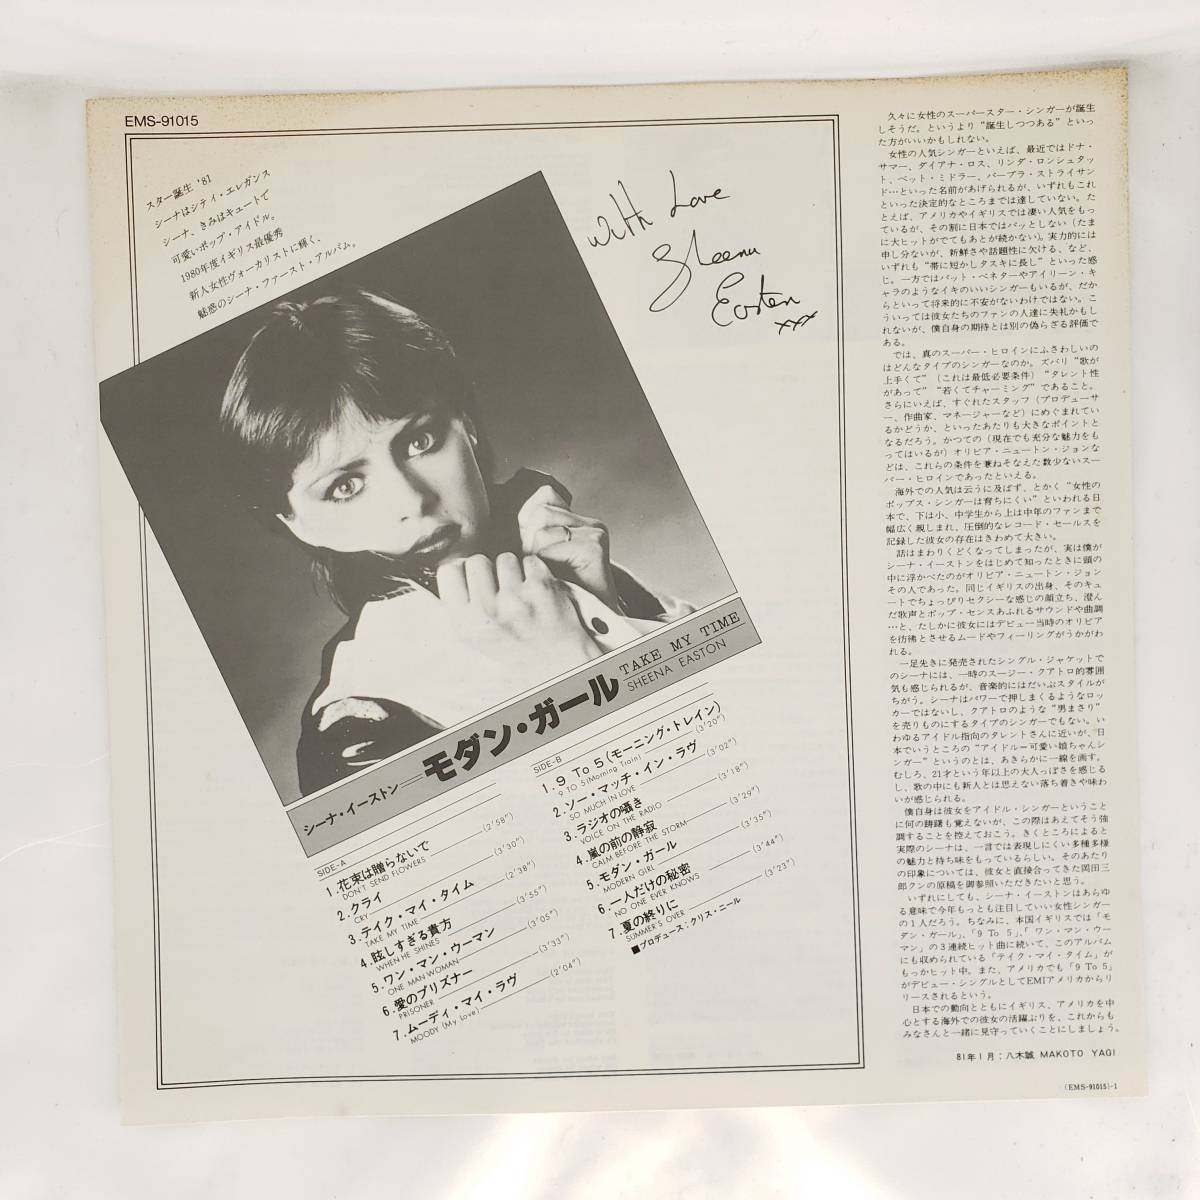 EMS-91015
スター誕生 '81
シーナはシティ・エレガンス
シーナ、きみはキュートで
可愛いポップ・アイドル。
1980年度イギリス最優秀
新人女性ヴォーカリストに輝く、
魅惑のシーナ・ファースト・アルバム。
With Love
Sheena
Easton
xxx
TAKE MY TIME
SHEENA EASTON
シーナ・イーストン＝モダン・ガール
SIDE-A
1.花束は贈らないで (2'58")
DON'T SEND FLOWERS
2.クライ (3'30")
CRY
3.テイク・マイ・タイム (2'38")
TAKE MY TIME
4.眩しすぎる貴方 (3'55")
WHEN HE SHINES
5.ワン・マン・ウーマン (3'05")
ONE MAN WOMAN
6.愛のプリズナー (3'33")
PRISONER
7.ムーディ・マイ・ラヴ (2'04")
MOODY (My Love)
SIDE-B
1.9 To 5(モーニング・トレイン) (3'20")
9 TO 5(Morning Train)
2.ソー・マッチ・イン・ラヴ (3'02")
SO MUCH IN LOVE
3.ラジオの囁き (3'18")
VOICE ON THE RADIO
4.嵐の前の静寂 (3'29")
CALM BEFORE THE STORM
5.モダン・ガール (3'35")
MODERN GIRL
6.一人だけの秘密 (3'44")
NO ONE EVER KNOWS
7.夏の終りに (3'23")
SUMMER'S OVER
■プロデュース：クリス・ニール
久々に女性のスーパースター・シンガーが誕生
しそうだ。というより“誕生しつつある”といっ
た方がいいかもしれない。
女性の人気シンガーといえば、最近ではドナ・
サマー、ダイアナ・ロス、リンダ・ロンシュタッ
ト、ベット・ミドラー、バーブラ・ストライサン
ド…といった名前があげられるが、いずれもこれ
といった決定的なところまでは達していない。た
とえば、アメリカやイギリスでは凄い人気をもっ
ているが、その割に日本ではパッとしない(たま
に大ヒットがでてもあとが続かない)。実力的には
申し分ないが、新鮮さや話題性に欠ける、など、
いずれも“帯に短かしタスキに長し”といった感
じ。一方ではパット・ベネターやアイリーン・キ
ャラのようなイキのいいシンガーもいるが、だか
らといって将来的に不安がないわけではない。こ
ういっては彼女たちのファンの人達に失礼かもし
れないが、僕自身の期待とは別の偽らざる評価で
ある。
では、真のスーパー・ヒロインにふさわしいの
はどんなタイプのシンガーなのか。ズバリ“歌が
上手くて”(これは最低必要条件)“タレント性
があって”“若くてチャーミング”であること。
さらにいえば、すぐれたスタッフ(プロデューサ
ー、作曲家、マネージャーなど)にめぐまれてい
るかどうか、といったあたりも大きなポイントと
なるだろう。かつての(現在でも充分な魅力をも
ってはいるが)オリビア・ニュートン・ジョンな
どは、これらの条件を兼ねそなえた数少ないスー
パー・ヒロインであったといえる。
海外での人気は云うに及ばず、とかく“女性の
ポップス・シンガーは育ちにくい”といわれる日
本で、下は小、中学生から上は中年のファンまで
幅広く親しまれ、圧倒的なレコード・セールスを
記録した彼女の存在はきわめて大きい。
話はまわりくどくなってしまったが、実は僕が
シーナ・イーストンをはじめて知ったときに頭の
中に浮かべたのがオリビア・ニュートン・ジョン
その人であった。同じイギリスの出身、そのキュ
ートでちょっぴりセクシーな感じの顔立ち、澄ん
だ歌声とポップ・センスあふれるサウンドや曲調
…と、たしかに彼女にはデビュー当時のオリビア
を彷彿とさせるムードやフィーリングがうかがわ
れる。
一足先きに発売されたシングル・ジャケットで
のシーナには、一時のスージー・クアトロ的雰囲
気も感じられるが、音楽的にはだいぶスタイルが
ちがう。シーナはパワーで押しまくるようなロッ
カーではないし、クアトロのような“男まさり”
を売りものにするタイプのシンガーでもない。い
わゆるアイドル指向のタレントさんに近いが、日
本でいうところの“アイドル＝可愛い娘ちゃんシ
ンガー”というのとは、あきらかに一線を画す。
むしろ、21才という年以上の大人っぽさを感じる
し、歌の中にも新人とは思えない落ち着きや味わ
いが感じられる。
僕自身は彼女をアイドル・シンガーということ
に何の躊躇も覚えないが、この際はあえてそう強
調することを控えておこう。きくところによると
実際のシーナは、一言では表現しにくい多種多様
の魅力と持ち味をもっているらしい。そのあたり
の印象については、彼女と直接合ってきた岡田三
郎クンの原稿を御参照いただきたいと思う。
いずれにしても、シーナ・イーストンはあらゆ
る意味で今年もっとも注目していい女性シンガー
の1人だろう。ちなみに、本国イギリスでは「モ
ダン・ガール」、「9 To 5」、「ワン・マン・ウー
マン」の3連続ヒット曲に続いて、このアルバム
にも収められている「テイク・マイ・タイム」が
もっかヒット中。また、アメリカでも「9 To 5」
がデビュー・シングルとしてEMIアメリカからリ
リースされるという。
日本での動向とともにイギリス、アメリカを中
心とする海外での彼女の活躍ぶりを、これからも
みなさんと一緒に見守っていくことにしましょう。
81年1月：八木誠 MAKOTO YAGI
(EMS-91015)-1